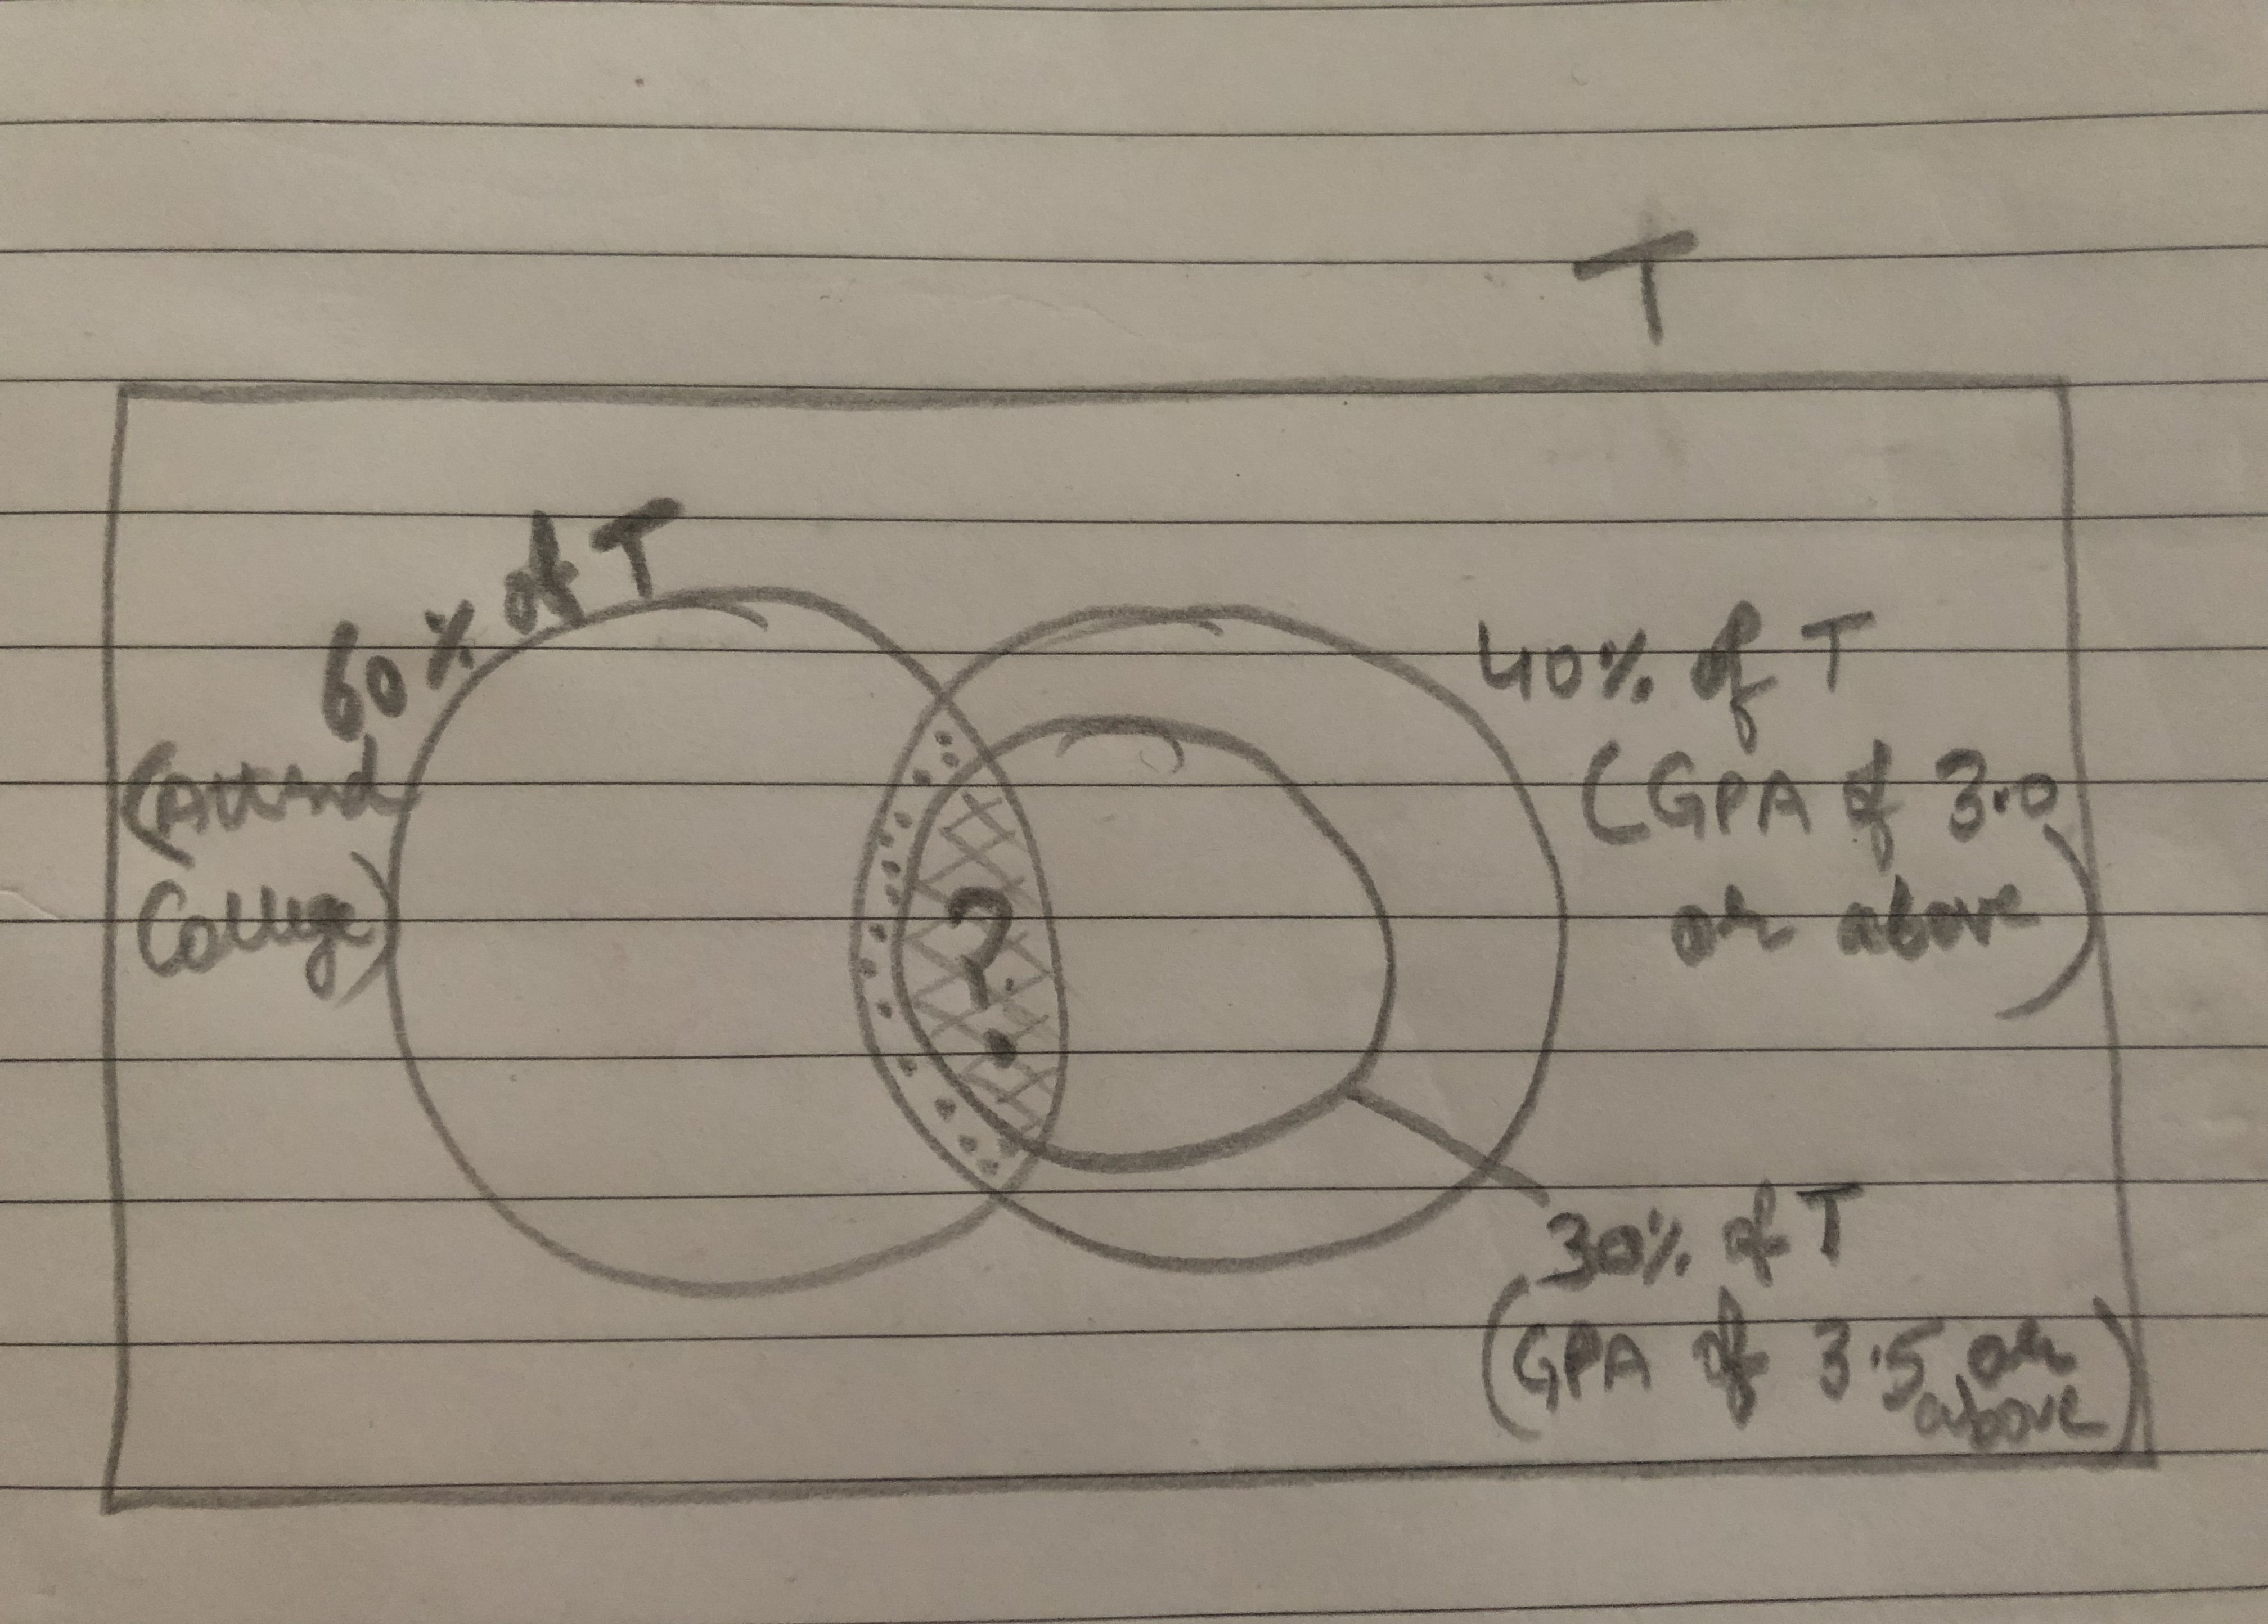 T
60% of T
(Attend
College)
40% of T
(GPA of 3.0
or above)
?
30% of T
(GPA of 3.5 or
above)